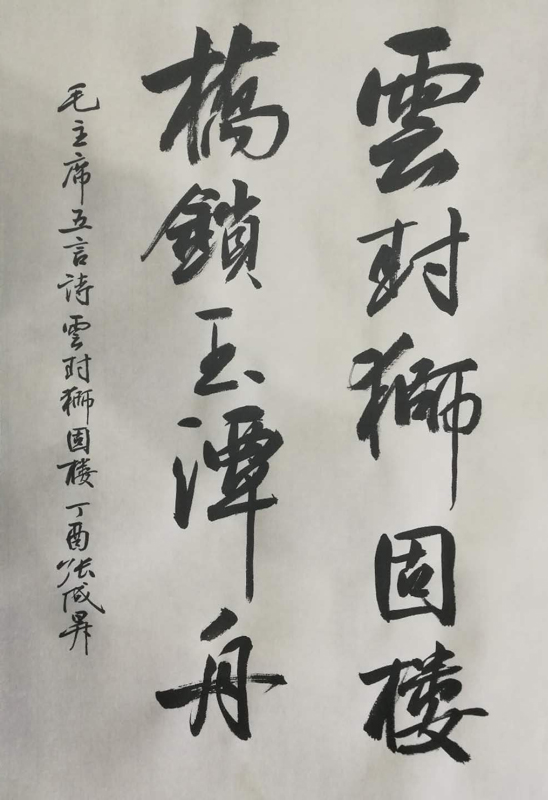 雲封獅固楼
橋鎖玉潭舟
毛主席五言詩雲封獅固楼丁酉張成昇